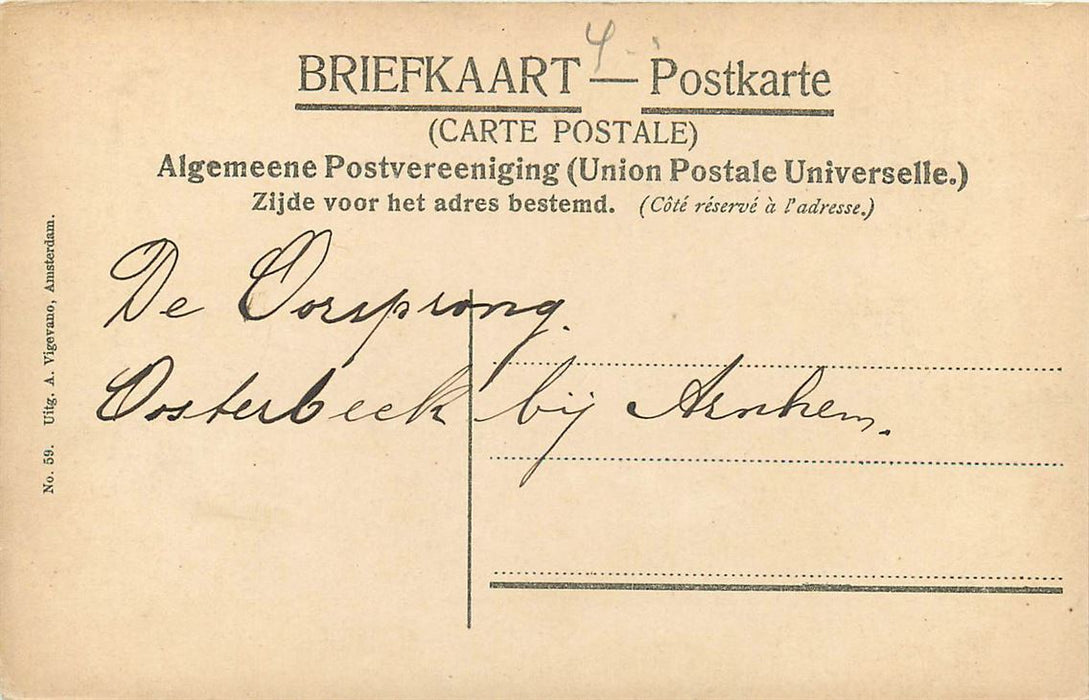 4
BRIEFKAART — Postkarte
(CARTE POSTALE)
Algemeene Postvereeniging (Union Postale Universelle.)
Zijde voor het adres bestemd. (Côté réservé à l'adresse.)
De Oorsprong.
Oosterbeek bij Arnhem.
No. 59. Uitg. A. Vigevano, Amsterdam.